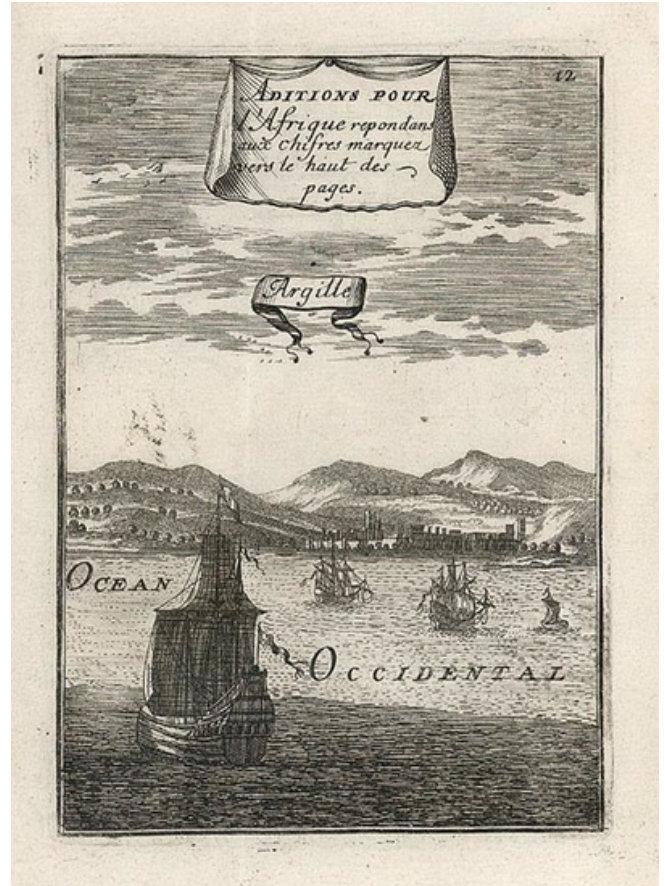 12
ADITIONS POUR
l'Afrique repondans
aux chifres marquez
vers le haut des
pages.
Argille
OCEAN
OCCIDENTAL